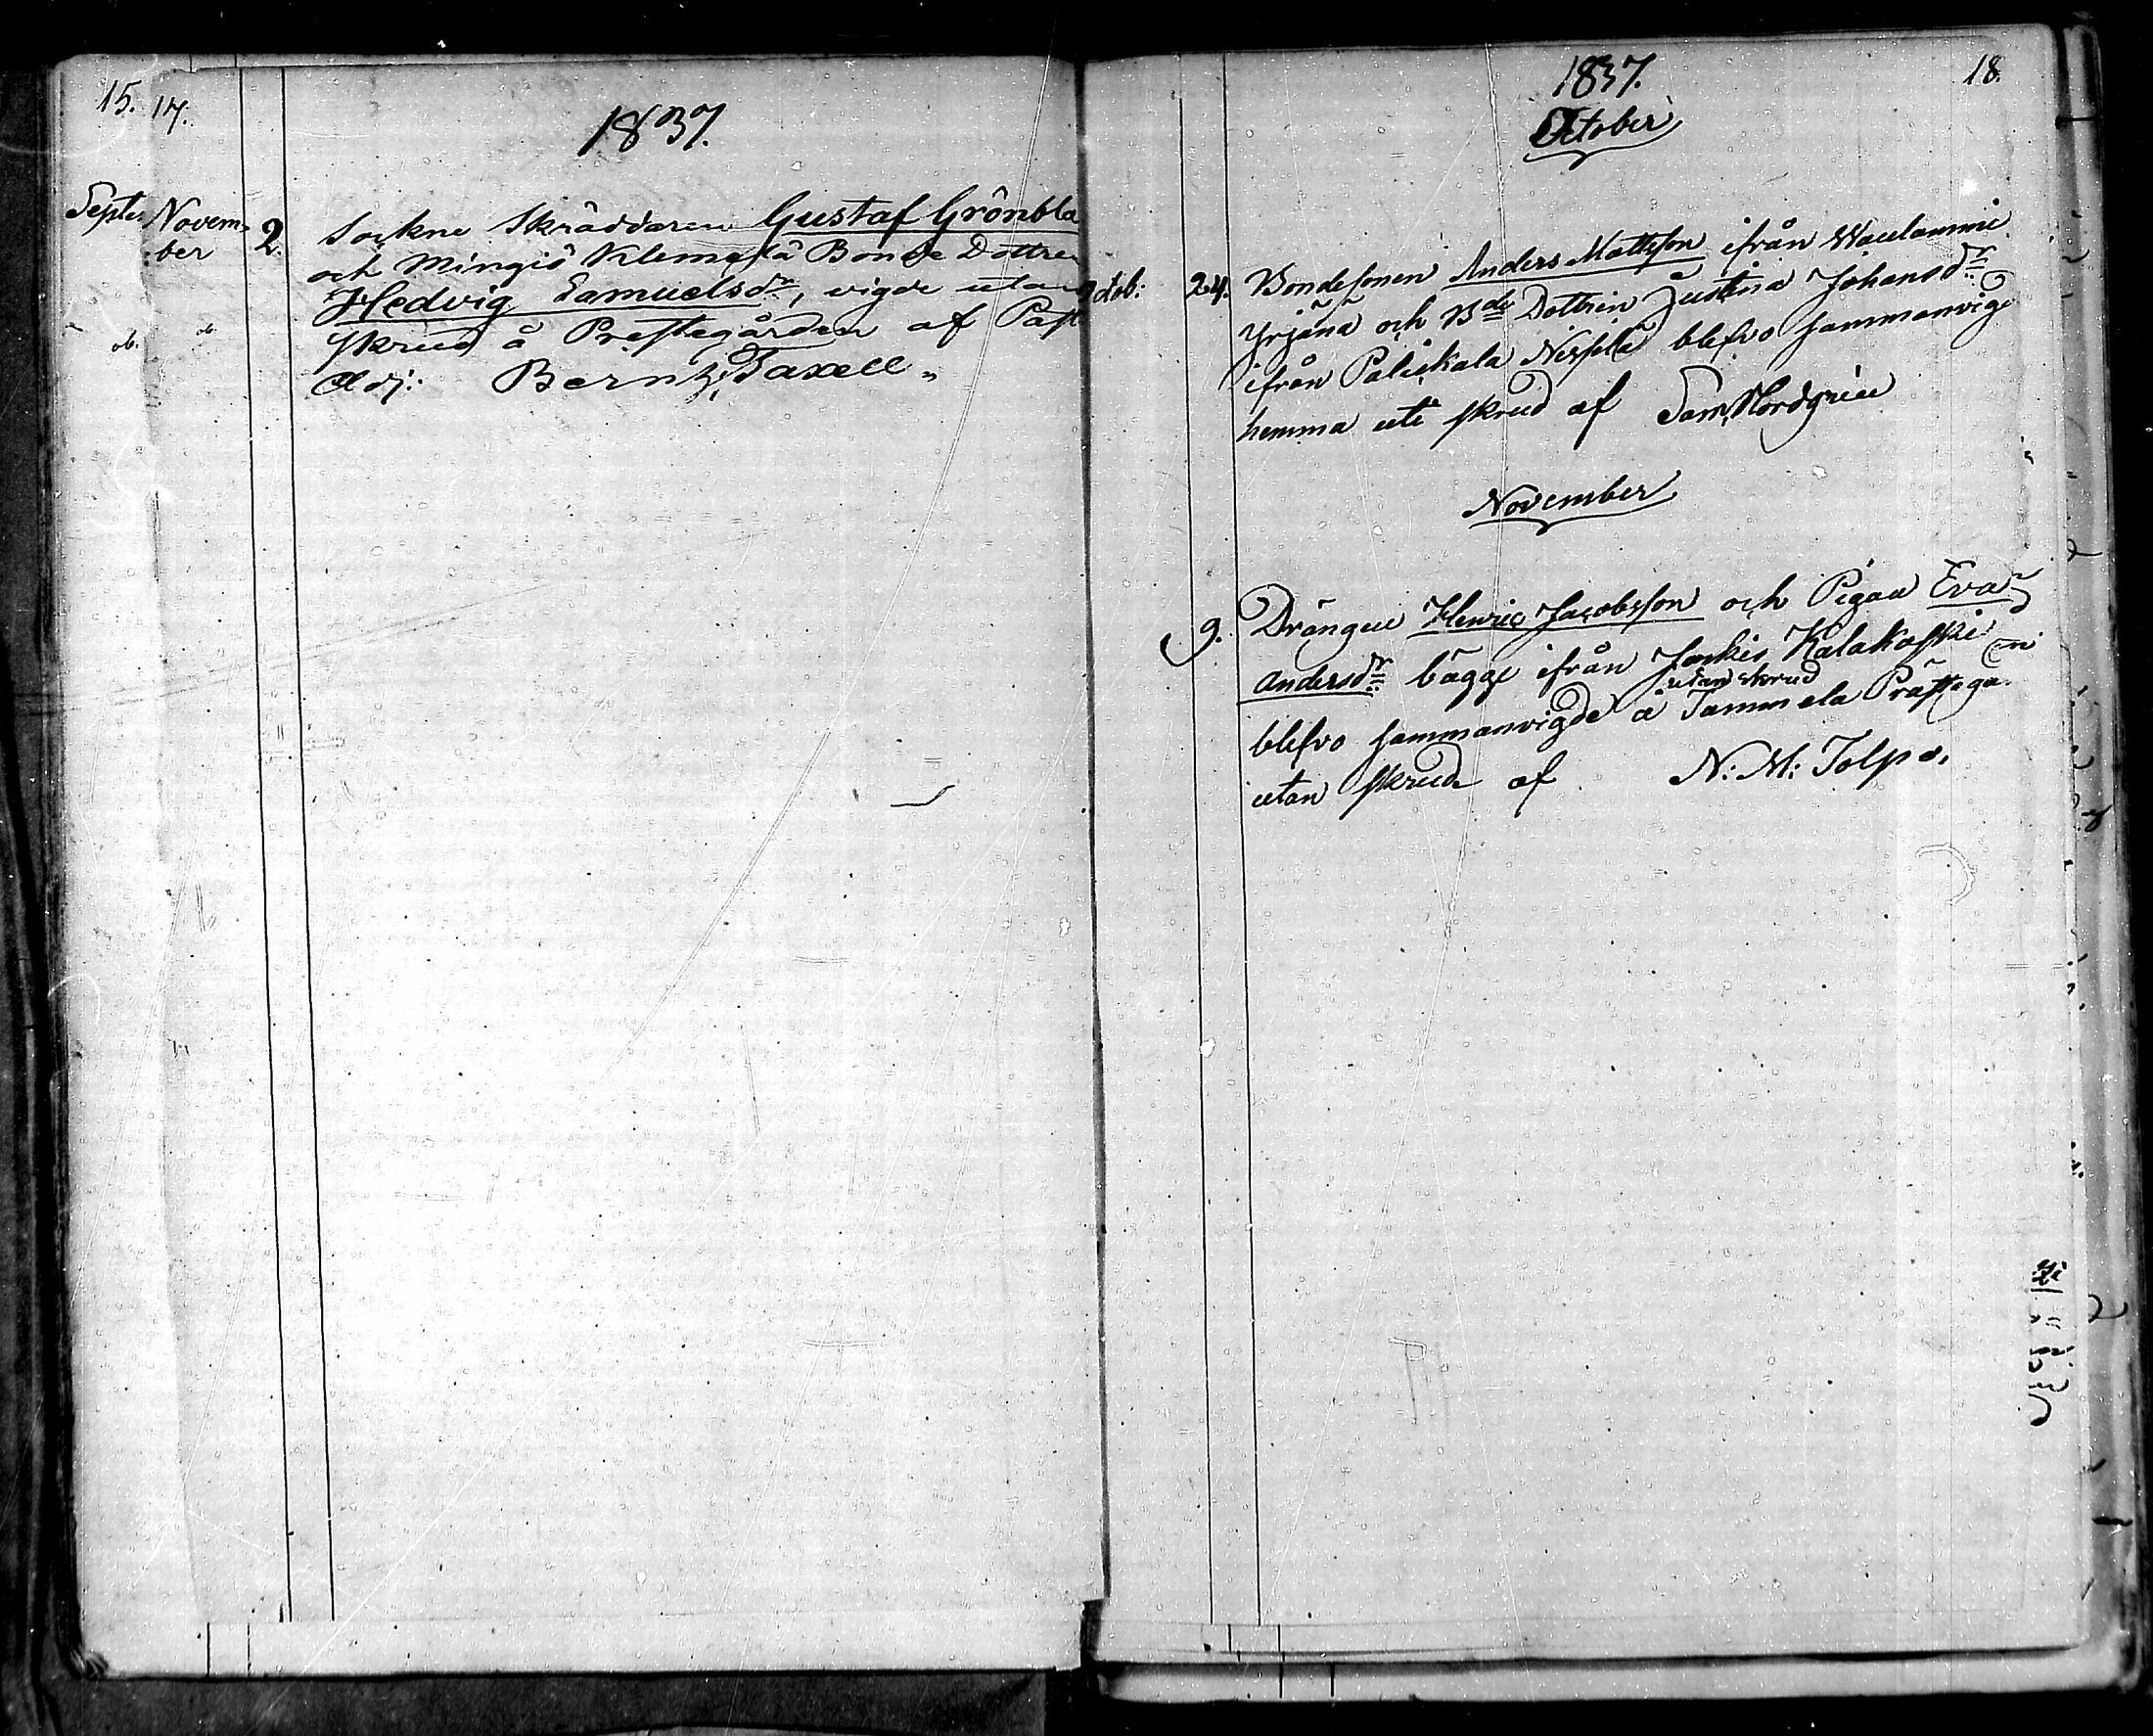 15. 17.
1837.
Septe. Novem-
ber
2.
Sockne Skräddaren Gustaf Grönbla
och Mingiö Klemelä Bonde Dottren
Hedvig Samuelsdr, vigde utan
skrud å Prestegården af Past
Adj: Bernh, Taxell.
ob.
1837. 18.
October
ctob: 24. Bondesonen Anders Mattsson ifrån Waulammi
Yrjänä och Bde Dottren Justina Johansdr
ifrån Paliskala blefvo sammanvigd
hemma uti skrud af Sam, Nordgren
November
9. Drängen Henric Jacobsson och Pigan Eva
Andersdr bägge ifrån Jockis Kalakoski
utan skrud
blefvo sammanvigde å Tammela Prästega
utan skrud af N: M: Tolpo.